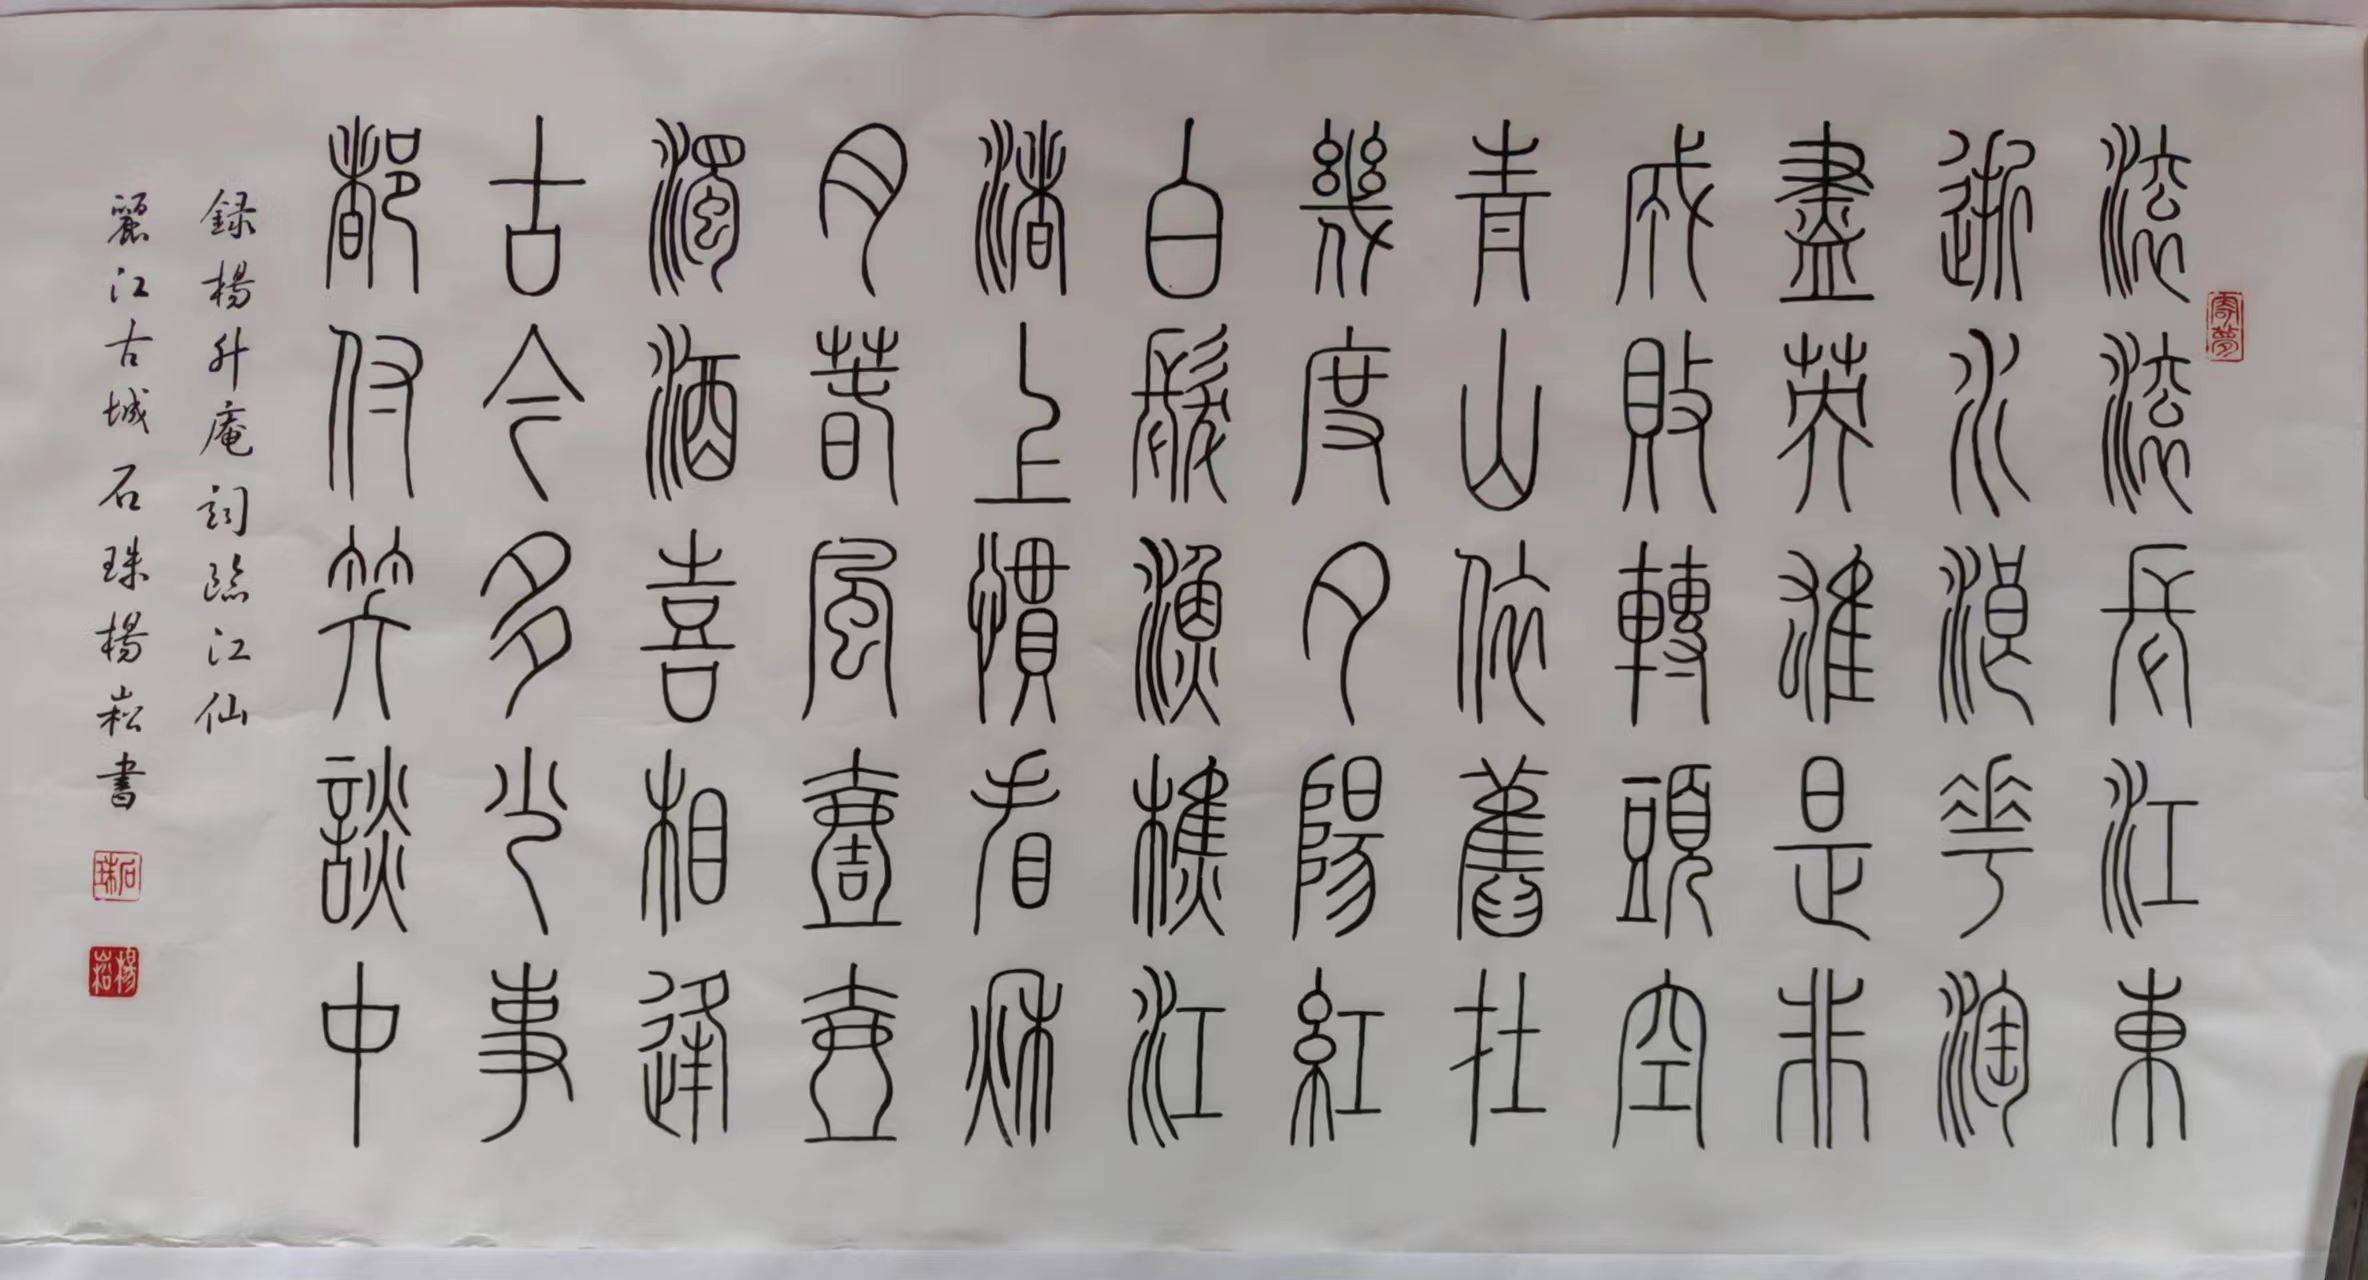 滾滾長江東
逝水浪花淘
盡英雄是非
成敗轉頭空
青山依舊在
幾度夕陽紅
白髮漁樵江
渚上慣看秋
月春風壹壺
濁酒喜相逢
古今多少事
都付笑談中
録楊升庵詞臨江仙
麗江古城石珠楊崧書
石珠
楊崧